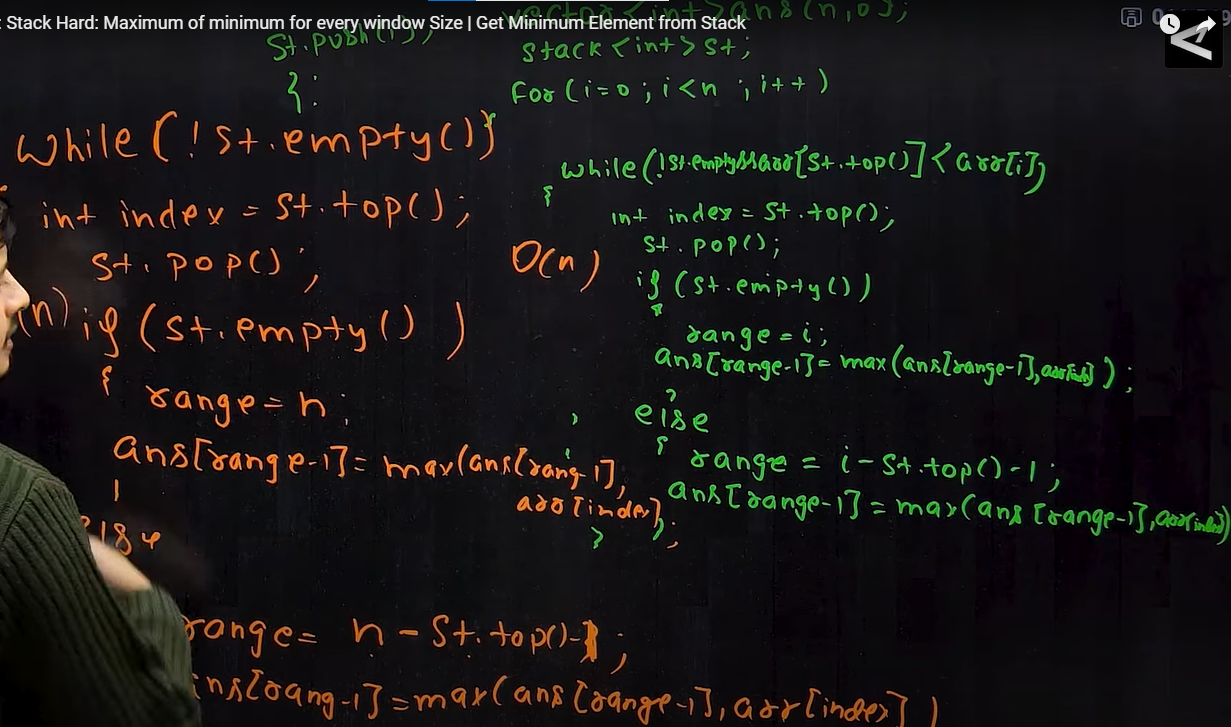 : Stack Hard: Maximum of minimum for every window Size | Get Minimum Element from Stack
vector<int>ans(n,0);
St.push(i);
}:
stack<int>st;
for(i=0;i<n ;i++)
while(!st.empty&&arr[st.top()]<arr[i])
{
int index = st.top();
st.pop();
if (st.empty())
{
range=i;
ans[range-1]= max(ans[range-1],arr[index]);
}
else
{
range = i-st.top()-1;
ans[range-1]=max(ans[range-1],arr[index])
O(n)
while(!st.empty()){
int index = st.top();
st.pop();
(n)
if (st.empty())
{
range=n;
ans[range-1]= max(ans[rang-1],
arr[index];
}
else
range= n-st.top()-1;
ans[rang-1]=max(ans[range-1],arr[index])